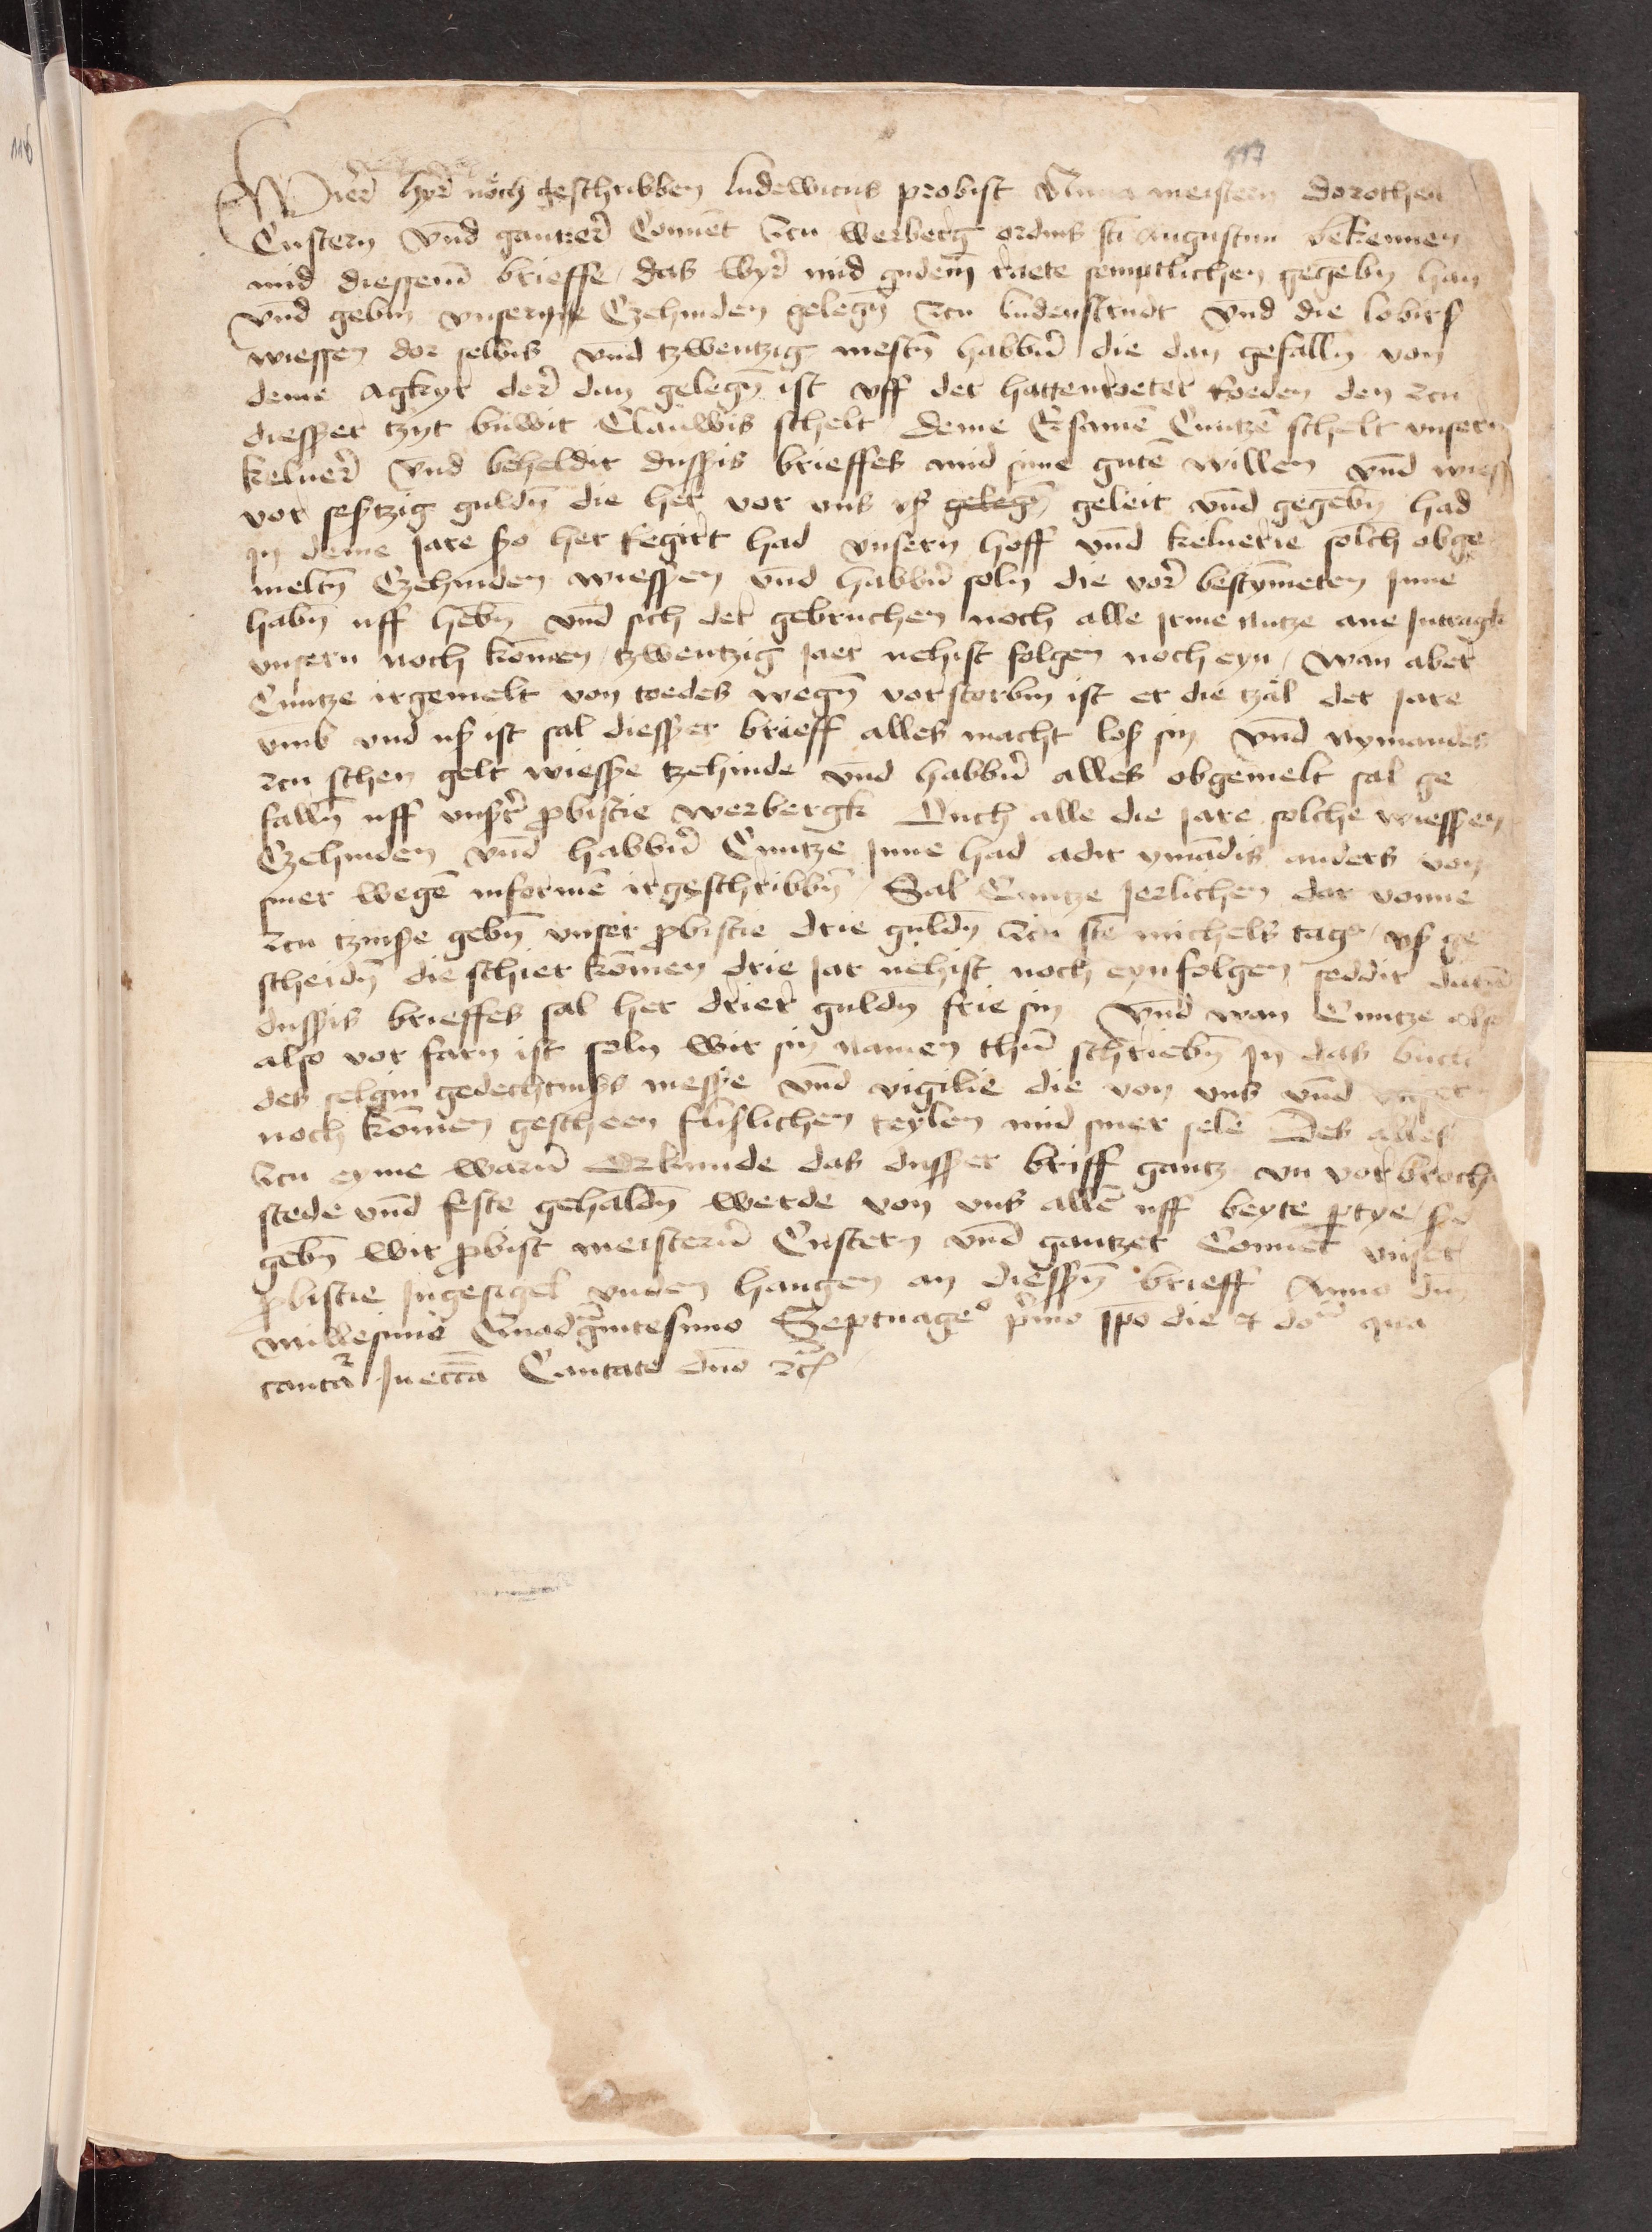 117
Wier hyr noch geschribben Ludewicus probist Anna meistern Dorothea
Custern vnd gantzer Conuet zcu werberg ordins sti Augustini bekennen
mid diessem brieffe das wyr mid gudem raete semptlichen gegebn han
vnd gebin vnsern Czehinden gelegn zcu ludenstrudt vnd die
wiessen dor selbis vnd tzwentzig mestn habbir die dan gefalln von
deme agkyr der dan gelegn ist vff der hattenroeter Roeden den zcu
diesser tzyt buwit Clauwis schelt deme Ersame Cuntze schelt vnsern
keluer vnd beheldir dussis brieffes mid sime gute willen vnd wies
vor sestzig guldn die her vor vns vs gelegn geleit vnd gegebn had
jn deme Jare so her Regirt had vnsern hoff vnd keluerie solch obge
meltn Czehinden wiessen vnd habbir soln die vor bestymeten Jnne
habn uff hebn vnd sich der gebruchen noch alle jrme nutze ane Jntragk
vnsern noch komen tzwentzig Jaer nehist folgen noch eyn wan aber
Cuntze irgemelt von toedes wegn vorstorbin ist er die tzal der Jare
vmb vnd us ist sal diesser brieff alles macht los sin vnd nymandes
zcu schen gelt wiesse tzehinde vnd habbir alles obgemelt sal ge
falln uff vnsr pbistie werbergk Auch alle die Jare solche wiessen
Czehinden vnd habbir Cuntze Jnne had adir ymadis anders von
siner wege informe irgeschribbn Sal Cuntze Jerlichen dar vonne
zcu tzinse gebn vnser pbistie drie guldn zcu ste michels tage vs ge
scheidn die schier komen drie Jar nehist noch eyn folgen seddir
dussis brieffes sal her drier guldn frie sin vnd wan Cuntze also
also vor farn ist soln wir sin namen thun schriebn Jn das buch
des selgin gedechtniss messe vnd vigilie die von vns vnd vnsern
noch komen gescheen flislichen teylen mid siner sele Des alles
zcu eyme warn Orkunde das dusser briff gantz vn vorbroch
stede vnd feste gehaldn werde von vns alle uff beyte ptye so
gebn wir pbist meistern Custern vnd gantzer Conuet vnser
pbistie Jngesigel vnden hangen an diessn brieff Anno dni
millesimo Quadgintesimo Septuageo pmo ipo die et do qua
cantar In eccia Cantate dno etc